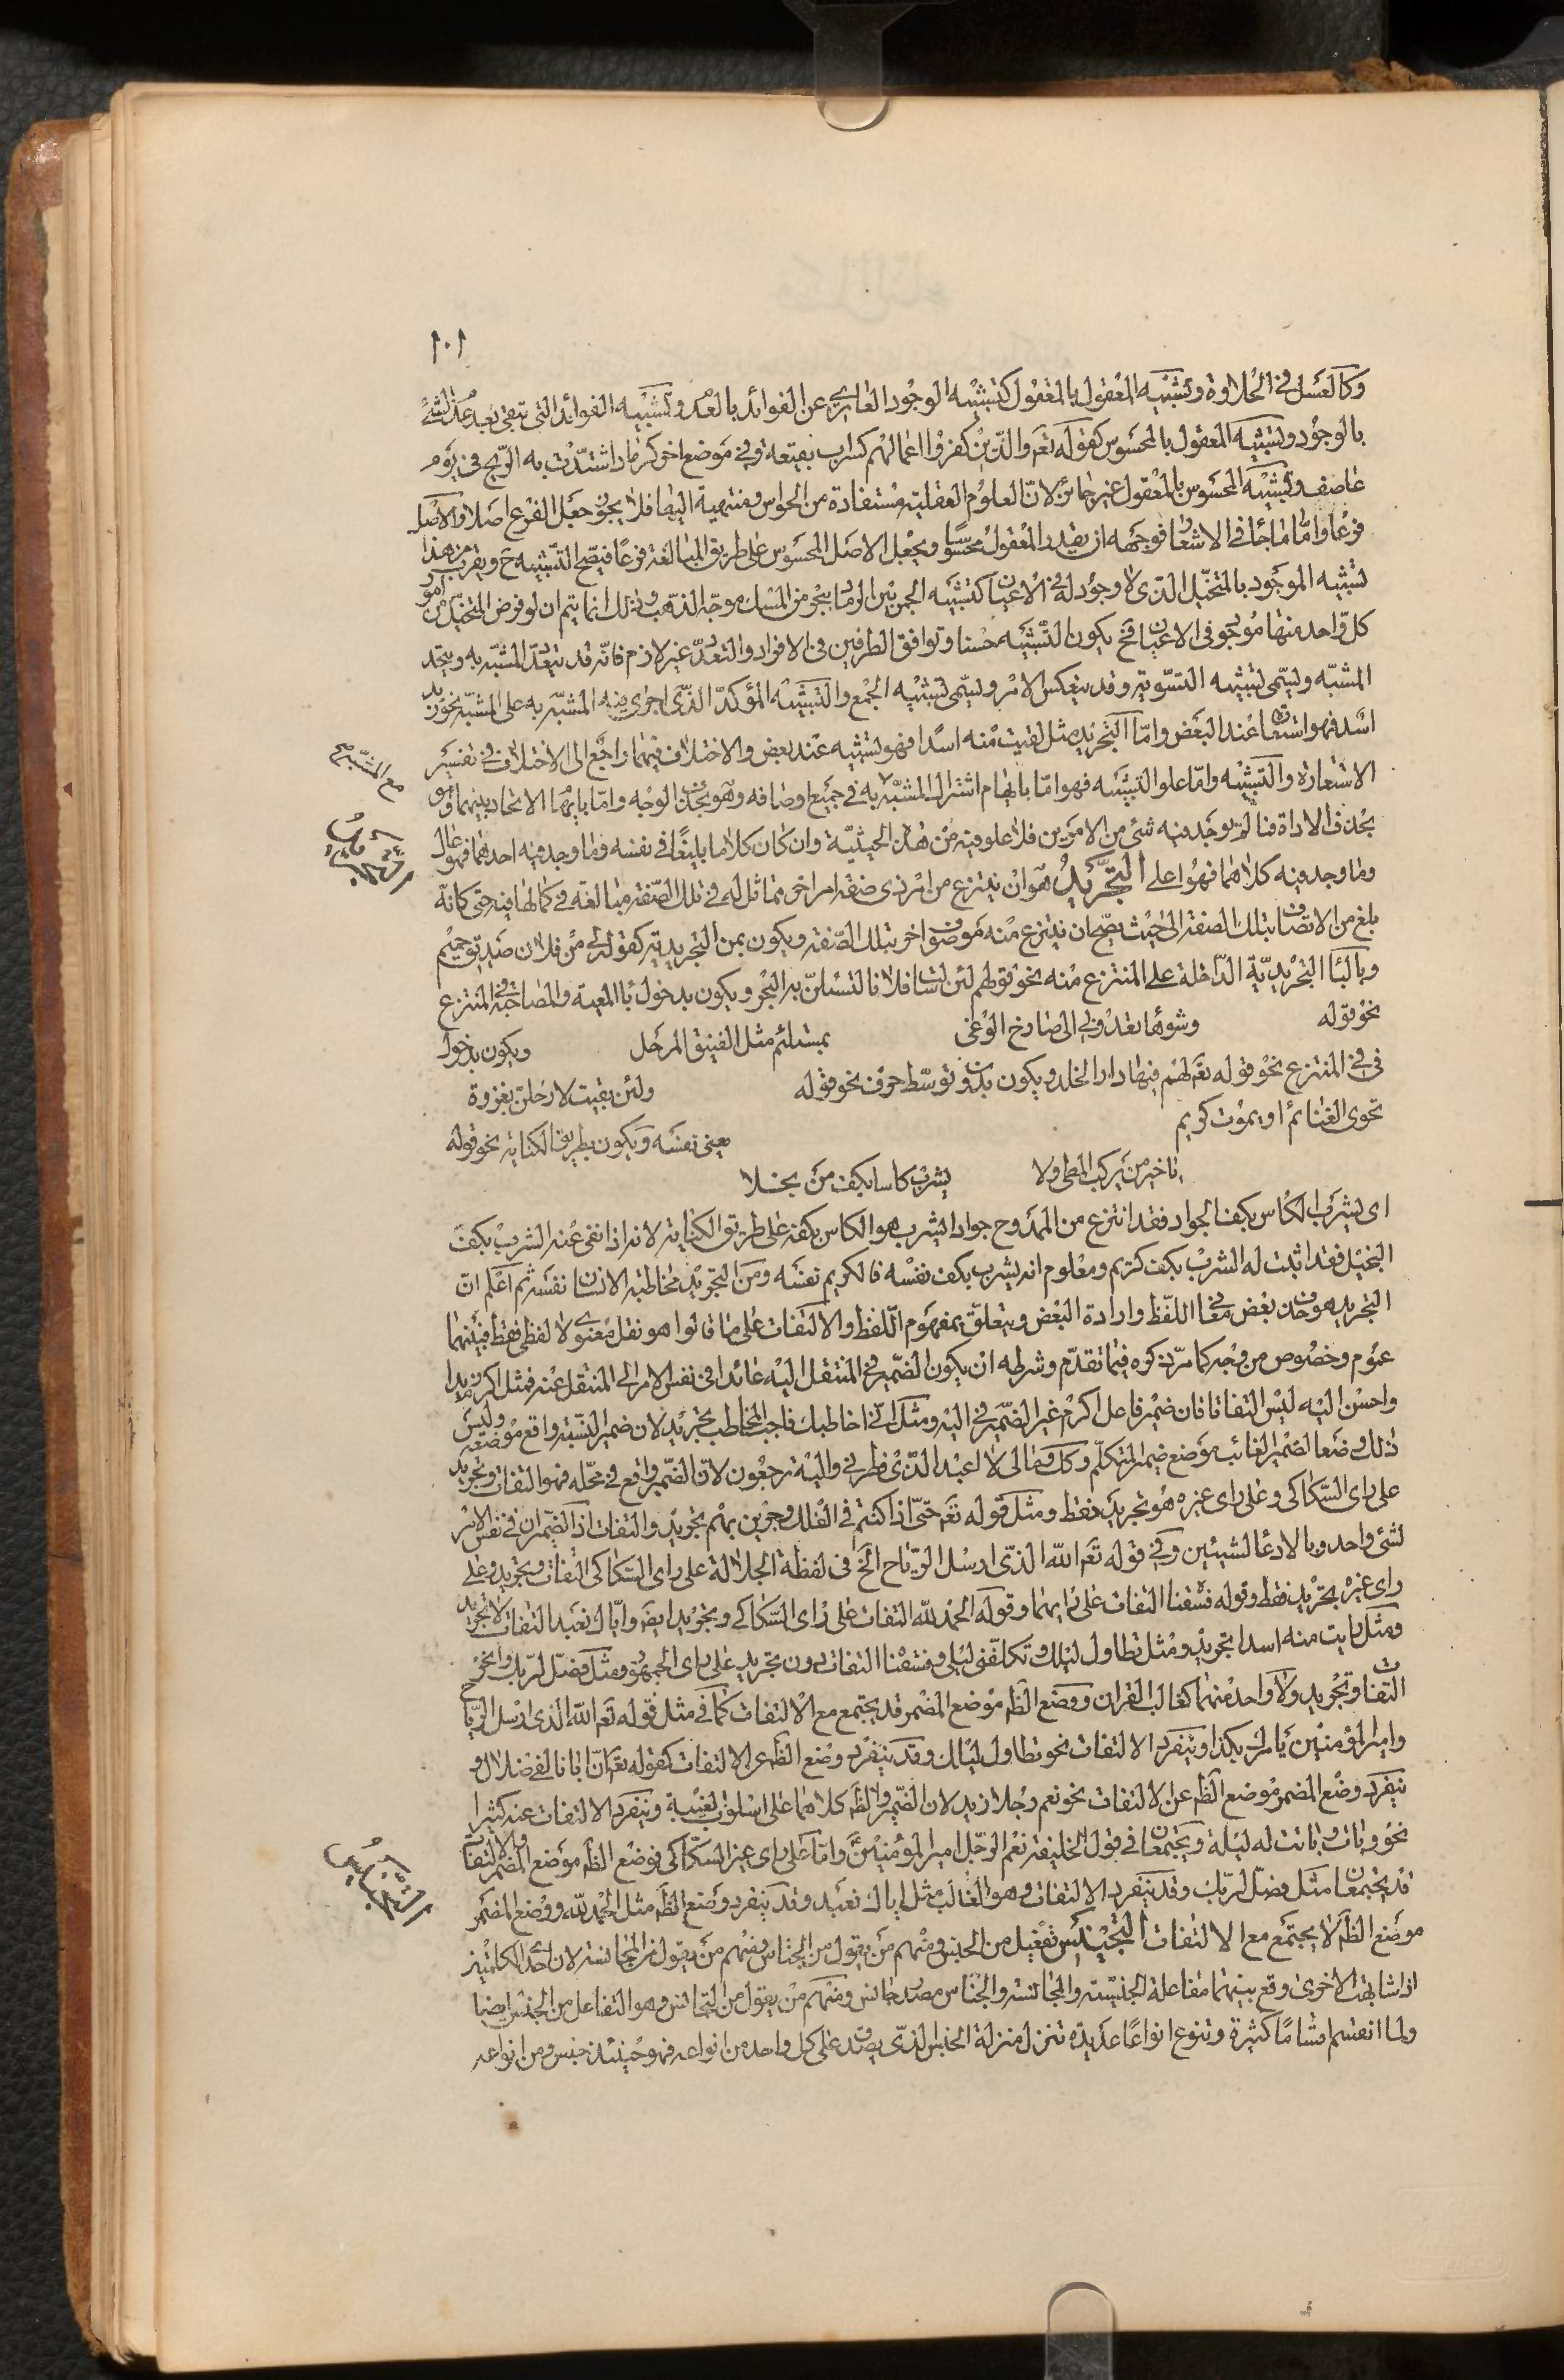 ١٠١
وكالعسل في الحلاوة وتشبيه المعقول بالمعقول كتشبيه الوجود العاري عن الفوائد بالعدم وتشبيه الفوائد التي تبقى بعد عدم الشئ
بالوجود وتشبيه المعقول بالمحسوس كقوله تعم والذين كفروا اعمالهم كسراب بقيعة وفي موضع اخر كرماد اشتدت به الريح في يوم
عاصف وتشبيه المحسوس بالمعقول غير جائز لان العلوم العقلية مستفادة من الحواس ومنتهية اليها فلا يجوز جعل الفرع اصلا والاصل
فرعا واما ما جاء في الاشعار فوجهه ان يقدر المعقول محسوسا ويجعل الاصل المحسوس على طريق المبالغة فرعا فيصح التشبيه ح ويقرب من هذا
تشبيه الموجود بالمتخيل الذي لا وجود له في الاعيان كتشبيه الجمر بين الرماد ببحر من المسك موجه الذهب وذلك انما يتم ان لو فرض المتخيل من امور
كل واحد منها موجود في الاعيان فح يكون التشبيه حسنا وتوافق الطرفين في الافراد والتعدد غير لازم فانه قد يتعدد المشبه به ويتحد
المشبه ويسمى تشبيه التسوية وقد ينعكس الامر ويسمى تشبيه الجمع والتشبيه المؤكد الذي اجرى فيه المشبه به على المشبه نحو زيد
اسد فهو استعارة عند البعض واما التجريد مثل لقيت منه اسدا فهو تشبيه عند بعض والاختلاف فيهما راجع الى الاختلاف في تفسير
الاستعارة والتشبيه واما علو التشبيه فهو اما بايهام اشتراك المشبه به في جميع اوصافه وهو بحذف الوجه واما بايهام الاتحاد بينهما وهو
مع المشبه صح
بحذف الاداة فما لم يوجد فيه شئ من الامرين فلا علو فيه من هذه الحيثية وان كان كلاما بليغا في نفسه وما وجد فيه احدهما فهو عال
وما وجد فيه كلاهما فهو اعلى التجريد هو ان ينتزع من امر ذي صفة امر اخر مماثل له في تلك الصفة مبالغة في كمالها فيه حتى كانه
بلغ من الاتصاف بتلك الصفة الى حيث يصح ان ينتزع منه موصوف اخر بتلك الصفة ويكون بمن التجريدية كقولك لي من فلان صديق حميم
وبالباء التجريدية الداخلة على المنتزع منه نحو قولهم لئن سالت فلانا لتسئلن به البحر ويكون بدخول باء المعية والمصاحبة في المنتزع
نحو قوله وشوهاء تعدو بي الى صارخ الوغى بمستلئم مثل الفنيق المرحل ويكون بدخول
في في المنتزع نحو قوله تعم لهم فيها دار الخلد ويكون بدون توسط حرف نحو قوله ولئن بقيت لارحلن بغزوة
تحوي الغنائم او يموت كريم يعني نفسه ويكون بطريق الكناية نحو قوله
يا خير من يركب المطي ولا يشرب كاسا بكف من بخلا
اي يشرب الكاس بكف الجواد فقد انتزع من الممدوح جوادا يشرب هو الكاس بكفه على طريق الكناية لانه اذا نفى عنه الشرب بكف
البخيل فقد اثبت له الشرب بكف كريم ومعلوم انه يشرب بكف نفسه فالكريم نفسه ومن التجريد مخاطبة الانسان نفسه ثم اعلم ان
التجريد هو حذف بعض معاني اللفظ وارادة البعض ويتعلق بمفهوم اللفظ والالتفات على ما قالوا هو نقل معنوي لا لفظي فقط فبينهما
عموم وخصوص من وجه كما مر ذكره فيما تقدم وشرطه ان يكون الضمير في المنتقل اليه عائدا في نفس الامر الى المنتقل عنه فمثل اكرم زيدا
واحسن اليه ليس التفاتا فان ضمير فاعل اكرم غير الضمير في اليه ومثل اني اخاطبك فاجب المخاطب تجريد لان ضمير النسبة واقع موضعه وليس
ذلك وضعا لضمير الغائب موضع ضمير المتكلم وكذا وما لي لا اعبد الذي فطرني واليه ترجعون لان الضمير واقع في محله فهو التفات وتجريد
على راي السكاكي وعلى راي غيره هو تجريد فقط ومثل قوله تعم حتى اذا كنتم في الفلك وجرين بهم تجريد والتفات اذ الضميران في نفس الامر
لشئ واحد وبالادعاء لشيئين وفي قوله تعم الله الذي ارسل الرياح الخ في لفظة الجلالة على راي السكاكي التفات وتجريد وعلى
راي غيره تجريد فقط وقوله فسقنا التفات على رايهما وقوله الحمد لله التفات على راي السكاكي وتجريد ايضا واياك نعبد التفات لا تجريد
ومثل رايت منه اسدا تجريد ومثل تطاول ليلك وتكلفني ليلى وفسقنا التفات دون تجريد على راي الجمهور ومثل فصل لربك وانحر
التفات وتجريد ولا واحد منهما كغالب القران ووضع الظم موضع المضمر قد يجتمع مع الالتفات كما في مثل قوله تعم الله الذي ارسل الرياح
وامير المؤمنين يامرك بكذا وينفرد الالتفات نحو تطاول ليلك وقد ينفرد وضع الظم عن الالتفات كقوله تعم ان ابانا لفي ضلال و
ينفرد وضع المضمر موضع الظم عن الالتفات نحو نعم رجلا زيد لان الضمير والظم كلاهما على اسلوب الغيبة وينفرد الالتفات عنه كثيرا
نحو وبات وباتت له ليلة ويجتمعان في قول الخليفة نعم الرجل امير المؤمنين واما على راي غير السكاكي فوضع الظم موضع المضمر والالتفات
قد يجتمعان مثل فصل لربك وقد ينفرد الالتفات وهو الغالب مثل اياك نعبد وقد ينفرد وضع الظم مثل الحمد لله ووضع المضمر
موضع الظم لا يجتمع مع الالتفات التجنيس تفعيل من الجنس ومنهم من يقول من الجناس ومنهم من يقول من المجانسة لان احد الكلمتين
اذا شابهت الاخرى وقع بينهما مفاعلة الجنسية والمجانسة والجناس مصدر جانس ومنهم من يقول من التجانس وهو التفاعل من الجنس ايضا
ولما انقسم اقساما كثيرة وتنوع انواعا عديدة تنزل منزلة الجنس الذي يصدق على كل واحد من انواعه فهو حينئذ جنس ومن انواعه